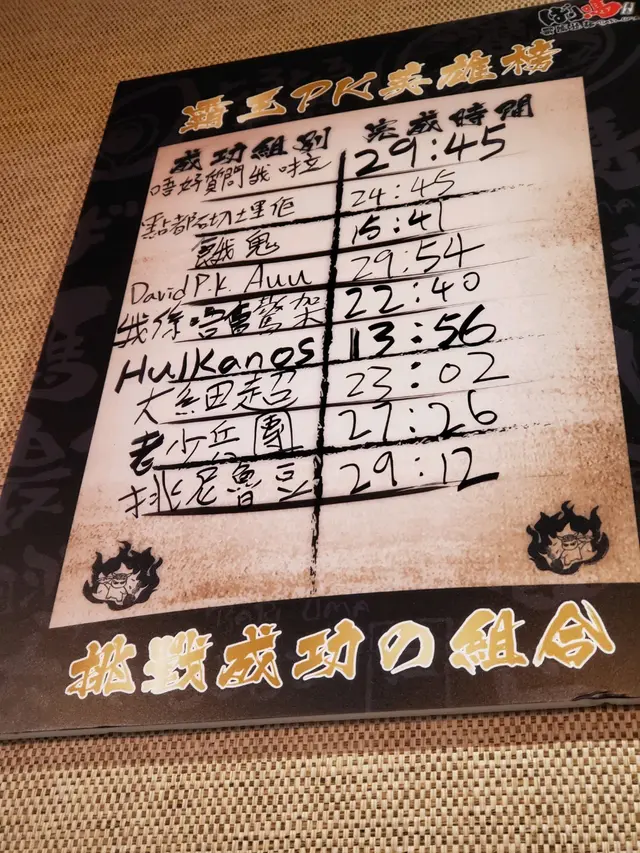 霸王PK英雄榜
成功組別 完成時間
唔好質問我 29:45
點都切 24:45
餓鬼 15:41
David P.K. Auu 29:54
我係 驚架 22:40
Hulkanos 13:56
大細超 23:02
老少兵團 27:26
排尼魯 29:12
挑戰成功の組合